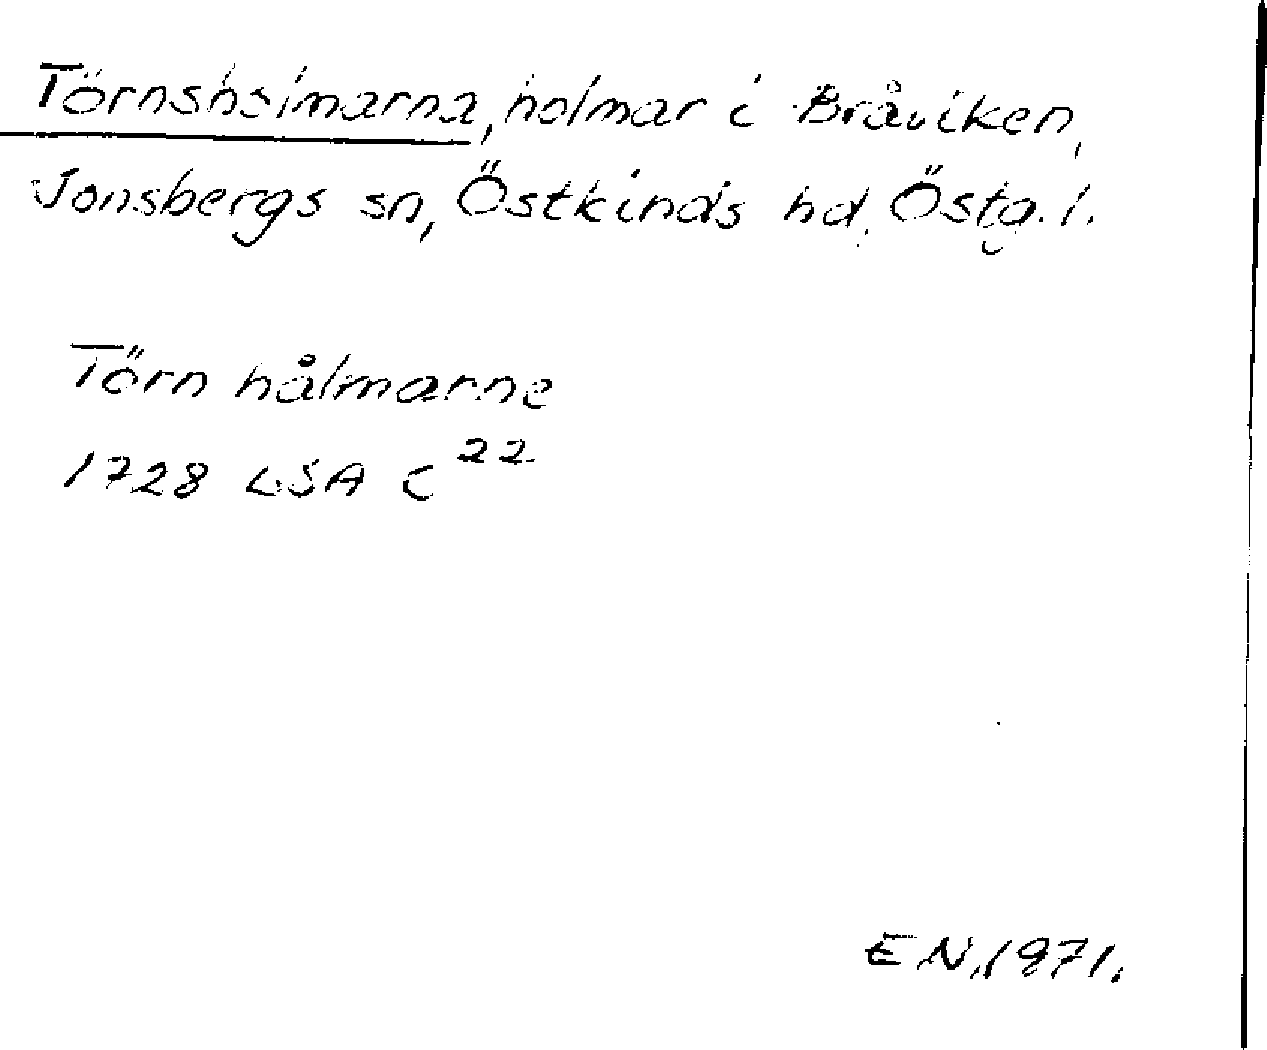 Törnsholmarna, holmar i Bråviken,
Jonsbergs sn, Östkinds hd, Östg. l.
Törn hålmarne
1728 LSA C 22
EN, 1971.